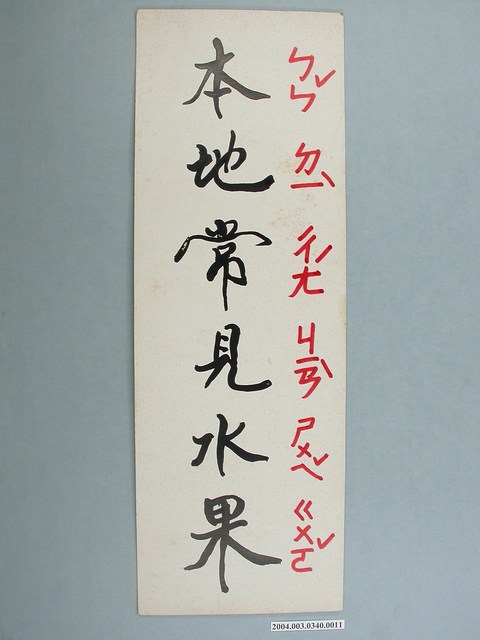 本地常見水果
ㄅㄣˇ ㄉㄧˋ ㄔㄤˊ ㄐㄧㄢˋ ㄕㄨㄟˇ ㄍㄨㄛˇ
2004.003.0340.0011